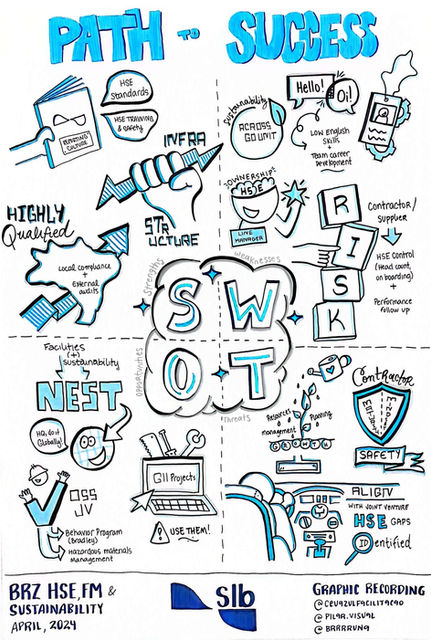 PATH TO SUCCESS
HSE
Standards
HSE TRAINING
& Safety
REPORTING
CULTURE
INFRA
STRUCTURE
HIGHLY
Qualified
Local compliance
+
External
audits
Sustainability
ACROSS
GO UNIT
Hello!
Oi!
Low English
Skills
+
Team career
Development
¿OWNERSHIP?
HSE
LINE
MANAGER
R
I
S
K
Contractor/
supplier
HSE Control
(Head count,
on boarding)
+
Performance
follow up
Strengths
weaknesses
S W
O T
opportunities
Threats
Facilities
(+)
sustainability
NEST
HQ, do it
Globally!
OSS
JV
Behavior Program
(Bradley)
Hazardous materials
management
G11 Projects
USE THEM!
Resources
management
Planning
GROWTH
Contractor
SAFETY
ALIGN
WITH JOINT VENTURE
HSE GAPS
IDentified
BRZ HSE, FM &
SUSTAINABILITY
APRIL, 2024
slb
GRAPHIC RECORDING
@CEUAZULFACILITACAO
@PILAR.VISUAL
@BRRRRUNA